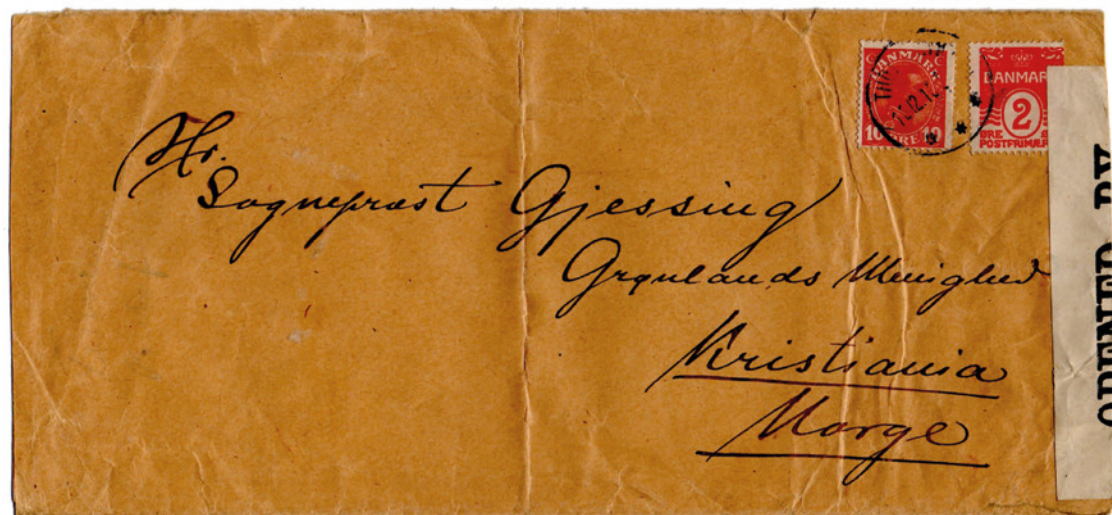 DANMARK
10 ØRE 10
DANMARK
2
ØRE
POSTFRIMÆR
Hr.
Sognepræst Gjessing
Grønlands Menighed
Kristiania
Norge
OPENED BY